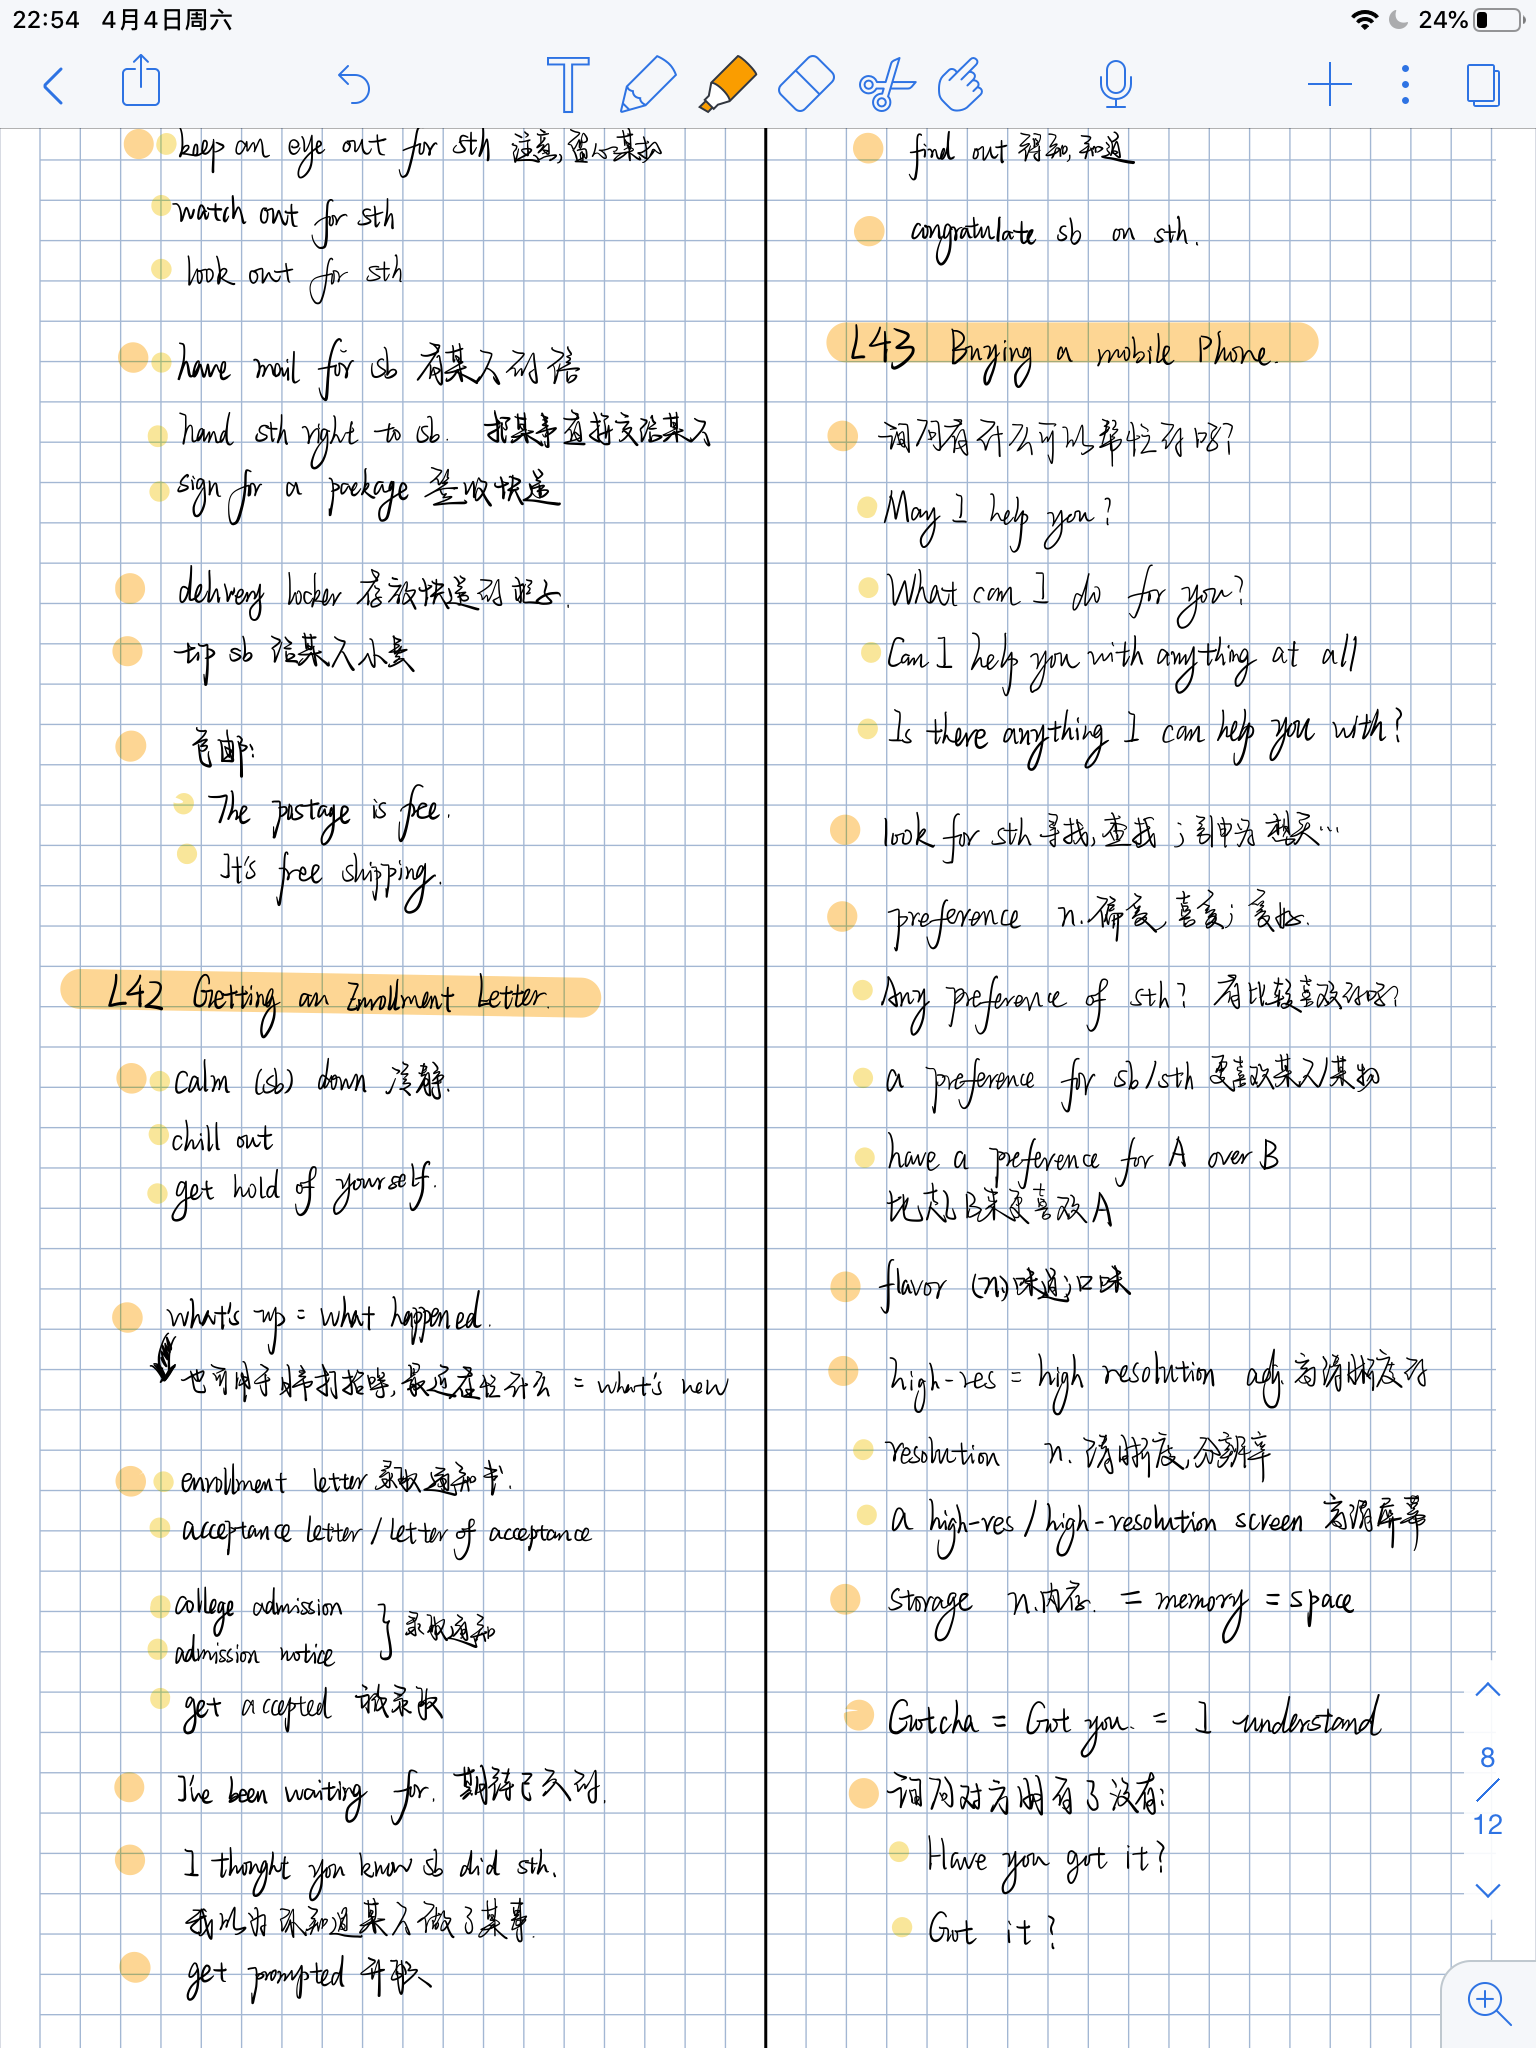 22:54 4月4日周六
24%
keep an eye out for sth 注意,留心某物
watch out for sth
look out for sth
have mail for sb 有某人的信
hand sth right to sb. 把某事直接交给某人
sign for a package 签收快递
delivery locker 存放快递的柜子.
tip sb 给某人小费
包邮:
The postage is free.
It's free shipping.
L42 Getting an Enrollment Letter.
calm (sb) down 冷静.
chill out
get hold of yourself.
what's up = what happened.
也可用于日常打招呼,最近在忙什么 = what's new
enrollment letter 录取通知书.
acceptance letter / letter of acceptance
college admission
admission notice
} 录取通知
get accepted 被录取
I've been waiting for. 期待已久的.
I thought you know sb did sth.
我以为你知道某人做了某事.
get prompted 升职
find out 得知,知道
congratulate sb on sth.
L43 Buying a mobile Phone.
询问有什么可以帮忙的吗?
May I help you?
What can I do for you?
Can I help you with anything at all
Is there anything I can help you with?
look for sth 寻找,查找;引申为 想买…
preference n.偏爱,喜爱;爱好.
Any preference of sth? 有比较喜欢的吗?
a preference for sb/sth 更喜欢某人/某物
have a preference for A over B
比起B来更喜欢A
flavor (n)味道;口味
high-res = high resolution adj.高清晰度的
resolution n. 清晰度,分辨率
a high-res / high-resolution screen 高清屏幕
storage n.内存. = memory = space
Gotcha = Got you. = I understand
询问对方明白了没有:
Have you got it?
Got it?
8
/
12